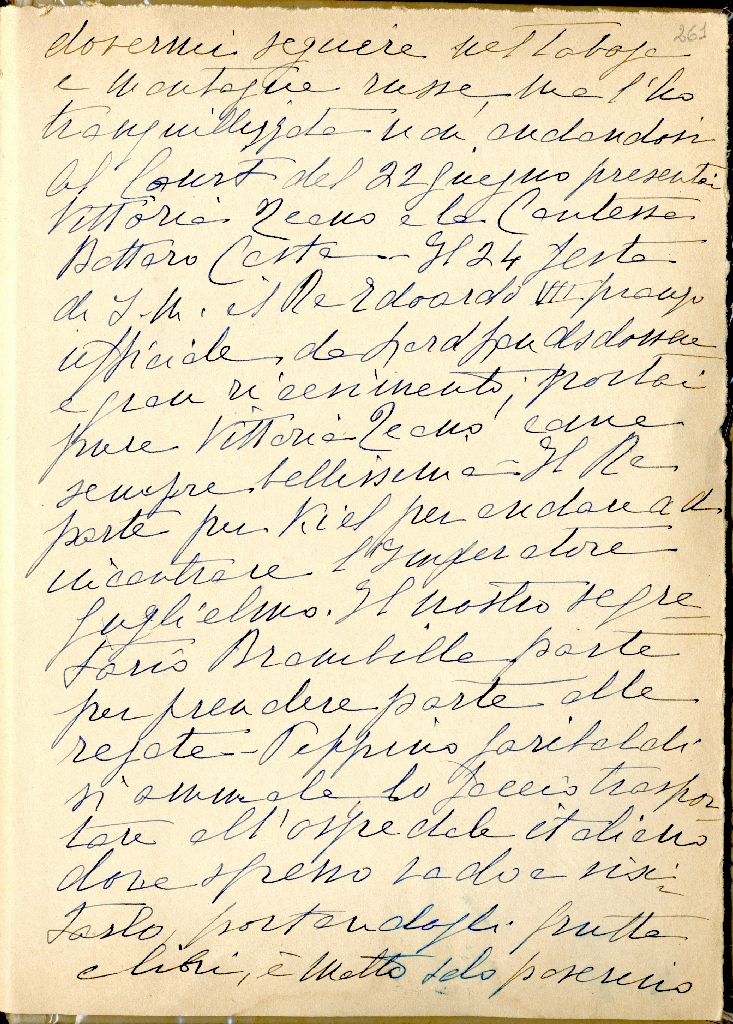 261
dovermi seguire nel taboga
e montagne russe, ma l'ho
tranquillizzata non andandovi
Al Court del 22 giugno presentai
Vittoria Teano e la Contessa
Bottaro Costa — Il 24 festa
di S. M. il Re Edoardo VII pranzo
ufficiale da Lord Lansdowne
e gran ricevimento, portai
pure Vittoria Teano, come
sempre bellissima = Il Re
parte per Kiel per andare ad
incontrare l'Imperatore
Guglielmo. Il nostro segre-
tario Brambilla parte
per prendere parte alle
regate — Peppino Garibaldi
si ammala, lo faccio traspor-
tare all'ospedale italiano
dove spesso vado a visi-
tarlo, portandogli frutta
e libri, è molto solo poverino